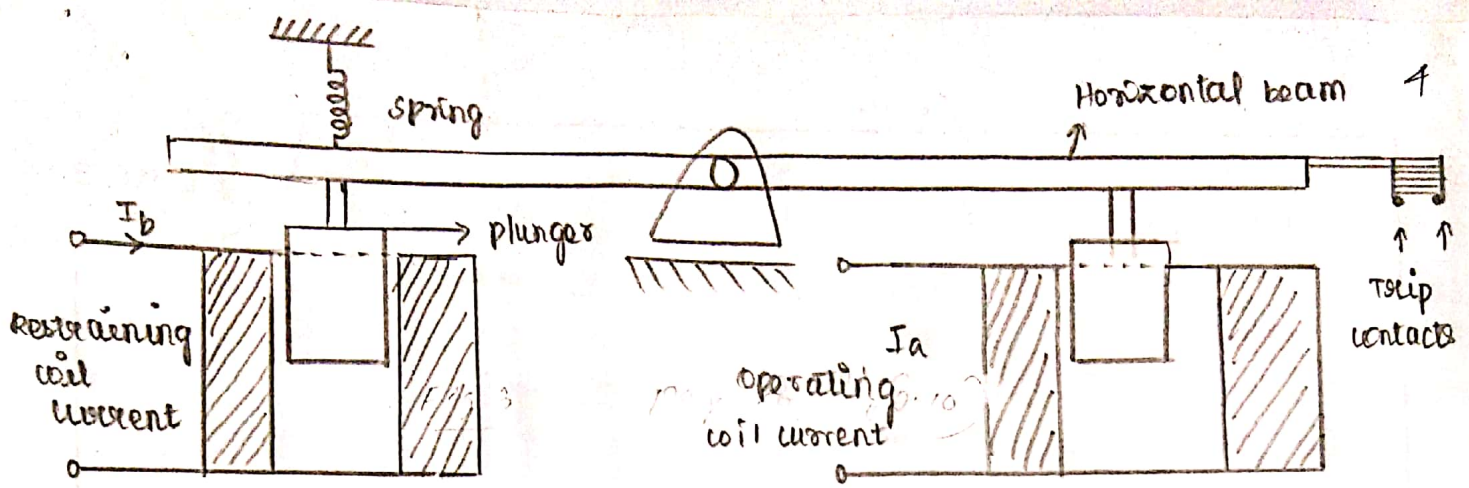 4
Horizontal beam
spring
Ib
plunger
Restraining
coil
current
Ia
operating
coil current
Trip
contacts